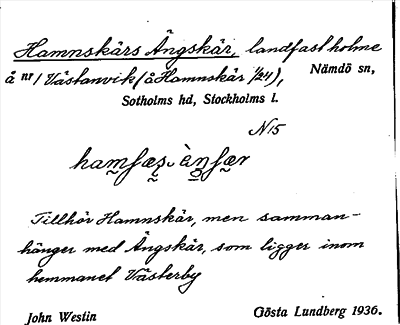 Hamnskärs Ängskär, landfast holme
å nr 1 Västanvik (å Hamnskär 1/24),
Nämdö sn,
Sotholms hd, Stockholms l.
N 15
Tillhör Hamnskär, men samman-
hänger med Ängskär, som ligger inom
hemmanet Västerby
John Westin
Gösta Lundberg 1936.